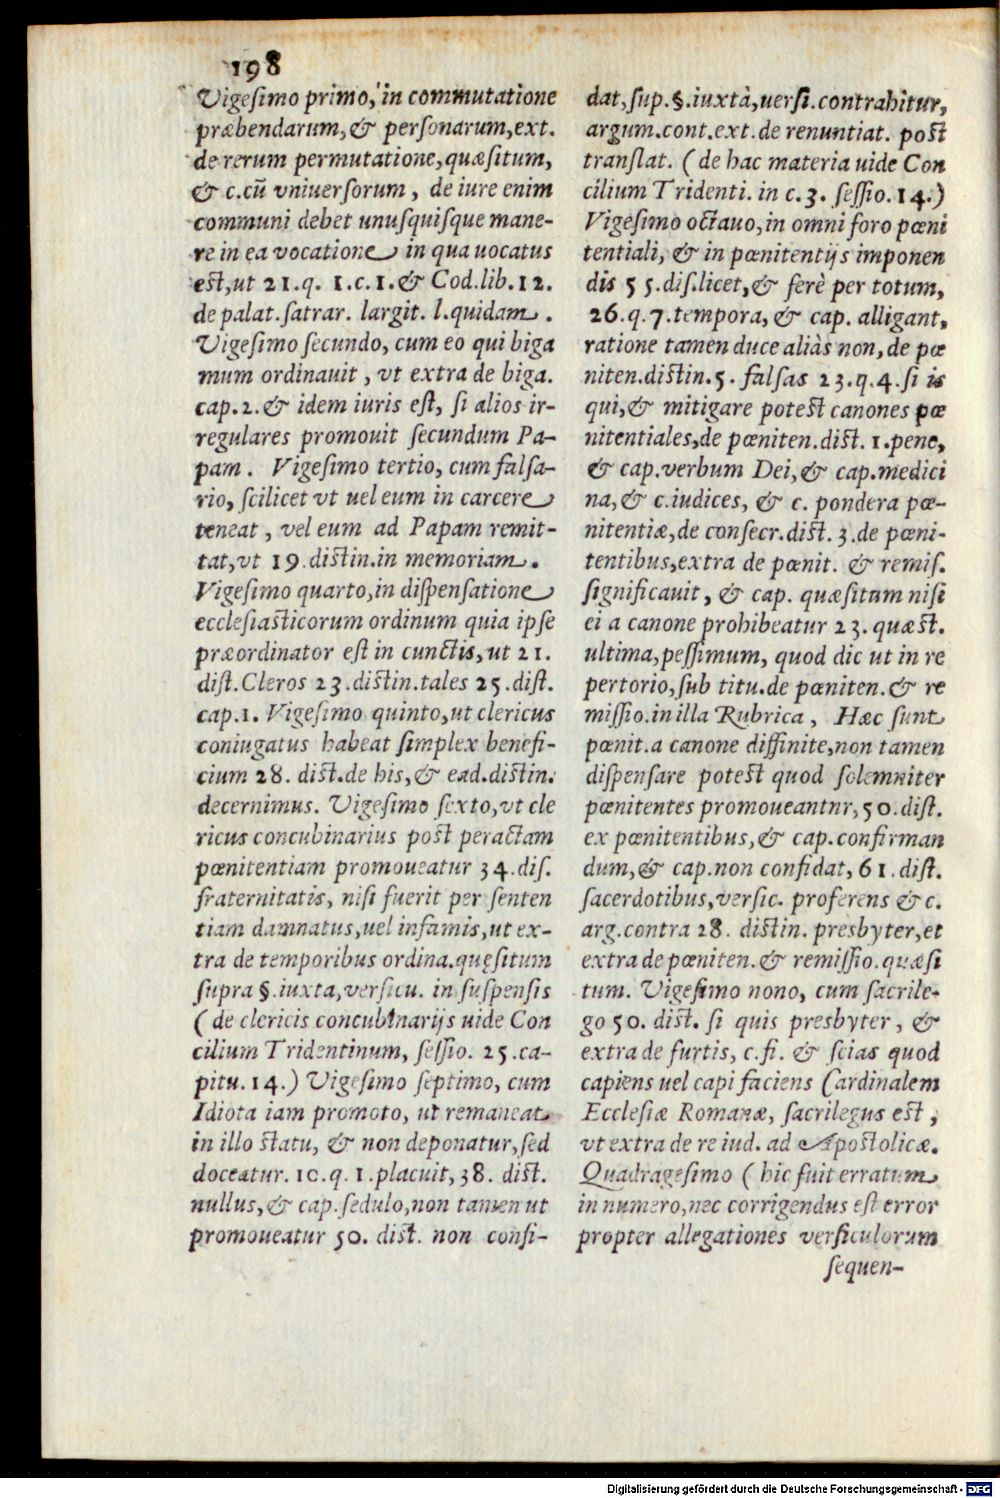 198
Vigesimo primo, in commutatione
præbendarum, & personarum, ext.
de rerum permutatione, quæsitum,
& c.cũ vniuersorum, de iure enim
communi debet unusquisque mane-
re in ea vocatione in qua uocatus
est, ut 21.q. 1.c.1.& Cod.lib.12.
de palat.satrar. largit. l.quidam.
Vigesimo secundo, cum eo qui biga
mum ordinauit, vt extra de biga.
cap.2.& idem iuris est, si alios ir-
regulares promouit secundum Pa-
pam. Vigesimo tertio, cum falsa-
rio, scilicet vt uel eum in carcere
teneat, vel eum ad Papam remit-
tat, vt 19.distin.in memoriam.
Vigesimo quarto, in dispensatione
ecclesiasticorum ordinum quia ipse
præordinator est in cunctis, ut 21.
dist.Cleros 23.distin.tales 25.dist.
cap.1. Vigesimo quinto, ut clericus
coniugatus habeat simplex benefi-
cium 28. dist.de his, & ead.distin.
decernimus. Vigesimo sexto, vt cle
ricus concubinarius post peractam
pœnitentiam promoueatur 34.dis.
fraternitatis, nisi fuerit per senten
tiam damnatus, uel infamis, ut ex-
tra de temporibus ordina.quęsitum
supra §.iuxta, versicu. in suspensis
(de clericis concubinarijs uide Con
cilium Tridentinum, sessio. 25.ca-
pitu.14.) Vigesimo septimo, cum
Idiota iam promoto, ut remaneat
in illo statu, & non deponatur, sed
doceatur. 1c.q. 1.placuit, 38. dist.
nullus, & cap.sedulo, non tamen ut
promoueatur 50. dist. non confi-
dat, sup.§.iuxtà, uersi.contrahitur,
argum.cont.ext.de renuntiat. post
translat. (de hac materia uide Con
cilium Tridenti. in c.3. sessio.14.)
Vigesimo octauo, in omni foro pœni
tentiali, & in pœnitentijs imponen
dis 55.dis.licet, & ferè per totum,
26.q.7.tempora, & cap. alligant,
ratione tamen duce aliàs non, de pœ
niten.distin.5. falsas 23.q.4.si is
qui, & mitigare potest canones pœ
nitentiales, de pœniten.dist. 1.pene,
& cap.verbum Dei, & cap.medici
na, & c.iudices, & c. pondera pœ-
nitentiæ, de consecr.dist. 3.de pœni-
tentibus, extra de pœnit. & remis.
significauit, & cap. quæsitum nisi
ei a canone prohibeatur 23. quæst.
ultima, pessimum, quod dic ut in re
pertorio, sub titu.de pœniten.& re
missio.in illa Rubrica, Hæc sunt
pœnit.a canone diffinite, non tamen
dispensare potest quod solemniter
pœnitentes promoueantnr, 50.dist.
ex pœnitentibus, & cap.confirman
dum, & cap.non confidat, 61.dist.
sacerdotibus, versic. proferens & c.
arg.contra 28. distin. presbyter, et
extra de pœniten.& remissio.quæsi
tum. Vigesimo nono, cum sacrile-
go 50. dist. si quis presbyter, &
extra de furtis, c.fi. & scias quod
capiens uel capi faciens Cardinalem
Ecclesiæ Romanæ, sacrilegus est,
vt extra de re iud. ad Apostolicæ.
Quadragesimo (hic fuit erratum
in numero, nec corrigendus est error
propter allegationes versiculorum
sequen-
Digitalisierung gefördert durch die Deutsche Forschungsgemeinschaft - DFG